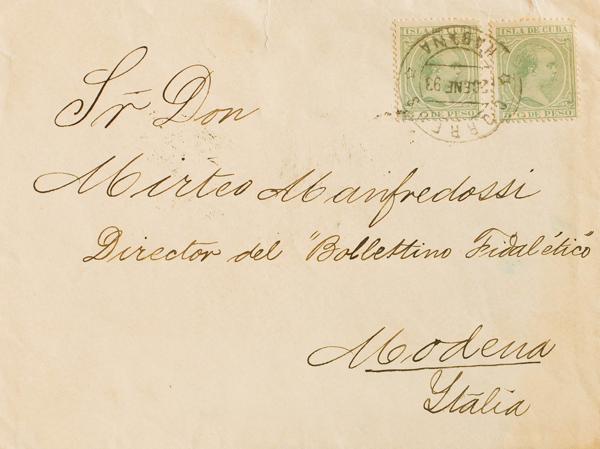 ISLA DE CUBA
ISLA DE CUBA
HABANA
26 ENE 93
CORREOS
C. DE PESO
C. DE PESO
Sr Don
Mirteo Manfredossi
Director del "Bollettino Fidalético"
Modena
Italia